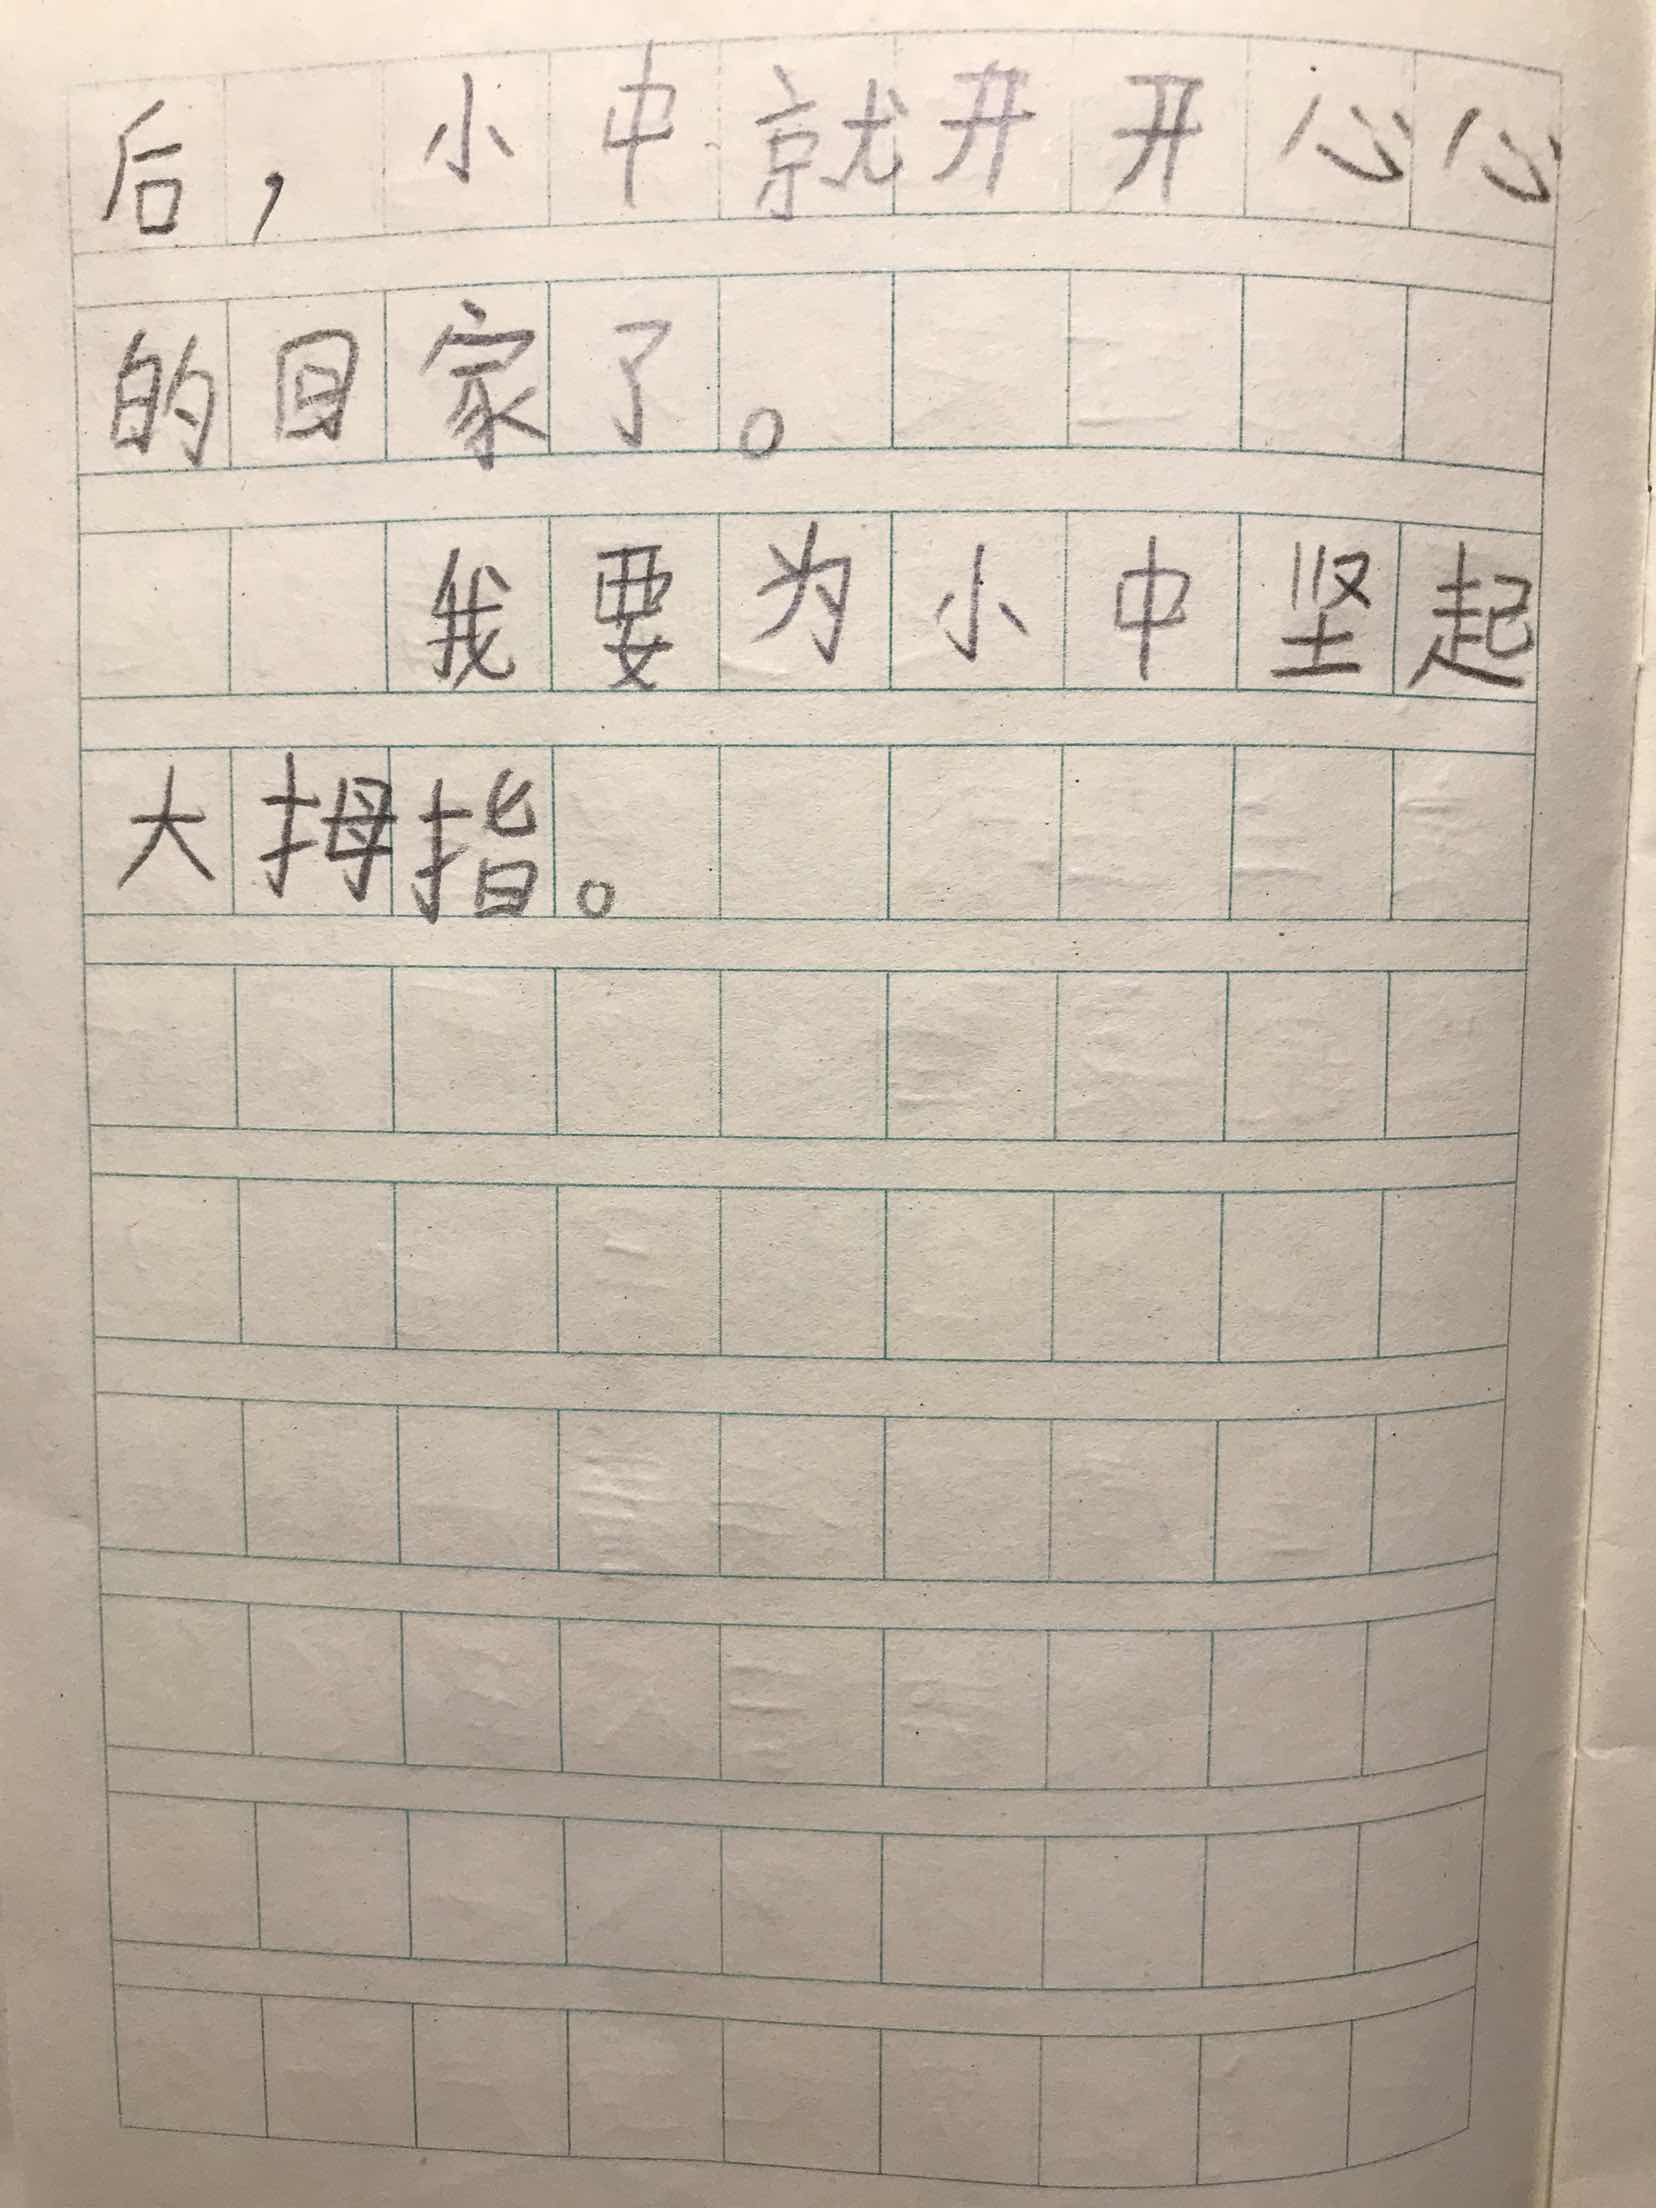 后，小中就开开心心
的回家了。
我要为小中坚起
大拇指。